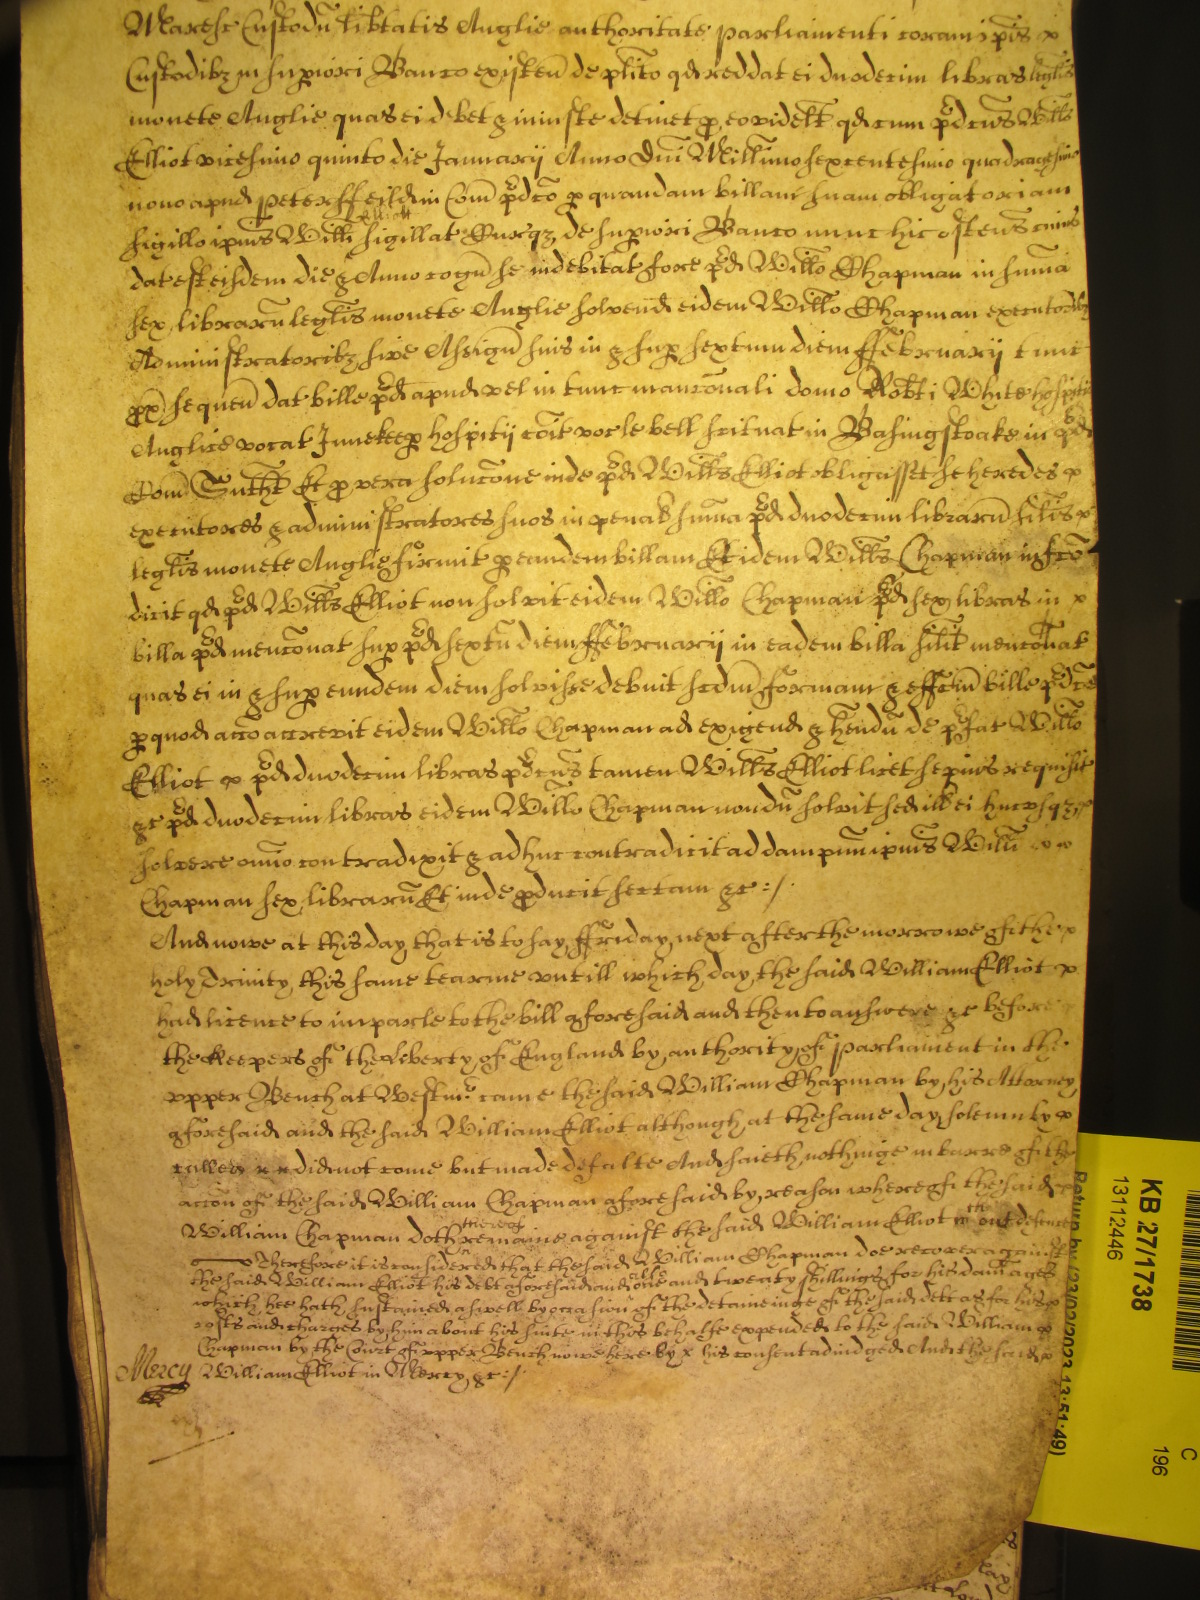 Maresc Custodū libtatis Anglie authoritate parliamenti coram ip̄is x
Custodibz in supiori Banco existen̄ de plito qd reddat ei duodecim libras leglis
monete Anglie quas ei debet & iniuste detinet p eo videlt qd cum p̄dcus Willus
Elliot vicesimo quinto die Januarij Anno Dni Millimo sexcentesimo quadragesimo
nono apud Petersfeild in Com p̄dco p quandam billam suam obligatoriam
sigillo ipius Willi Elliott sigillat Curqz de supiori Banco nunc hic ostens cuius
dat est eisdem die & Anno cogn se indebitat fore p̄d Willo Chapman in summa
sex librarū leglis monete Anglie solvend eidem Willo Chapman executoribz
Administratoribz sive Assign suis in & sup sextum diem ffebruarij tunc
prox sequen dat bille p̄d apud vel in tunc mancōnali domo Robti White hospitis
Anglice vocat Innekeep hospitij cōit voc le bell scituat in Basingstoake in p̄d
Com Sutht Et p vera solucōne inde p̄d Willus Elliot obligasset se heredes x
executores & administratores suos in penali summa p̄d duodecim librarū silis x
leglis monete Anglie firmit p eandem billam Et idem Willus Chapman in fco
dicit qd p̄d Willus Elliot non solvit eidem Willo Chapman p̄d sex libras in x
billa p̄d mencōnat sup p̄d sextū diem ffebruarij in eadem billa silit mencōnat
quas ei in & sup eundem diem solvisse debuit scdm formam & effcum bille p̄dce
p quod acco accrevit eidem Willo Chapman ad exigend & hend de p̄fat Willo
Elliot x p̄d duodecim libras p̄dcus tamen Willus Elliot licet sepius requisit
&c p̄d duodecim libras eidem Willo Chapman nondū solvit sed ill ei hucusqz x
solvere omino contradixit & adhuc contradicit ad dampnum ipius Willi x x
Chapman sex librarū Et inde pducit sectam &c :/
And nowe at this day that is to say ffriday next after the morrowe of the x
holy Trinity this same tearme untill which day the said William Elliot x
had licence to imparle to the bill aforesaid and then to answere &c before
the Keepers of the Liberty of England by authority of Parliament in the
upper Bench at Westmr came the said William Chapman by his Attorney
aforesaid and the said William Elliot although at the same day solemnly x
called x x did not come but made defalte And saieth nothinge in barre of the
accōn of the said William Chapman aforesaid by reason whereof the said
William Chapman doth remaine thereof against the said William Elliot wthout defence
Therefore it is considered that the said William Chapman doe recover against
the said William Elliot his debt aforesaid and alsoe one and twenty shillings for his damages
which hee hath sustained aswell by occasion of the detaineinge of the said debt as for his x
costs and charges by him about his suite in this behalfe expended to the said William x
Chapman by the Court of upper Bench nowe here by x his consent adiudged And the said x
Mercy William Elliot in Mercy &c :/
KB 27/1738
13112446
C
196
Return by (23/02/2023 13:51:49)